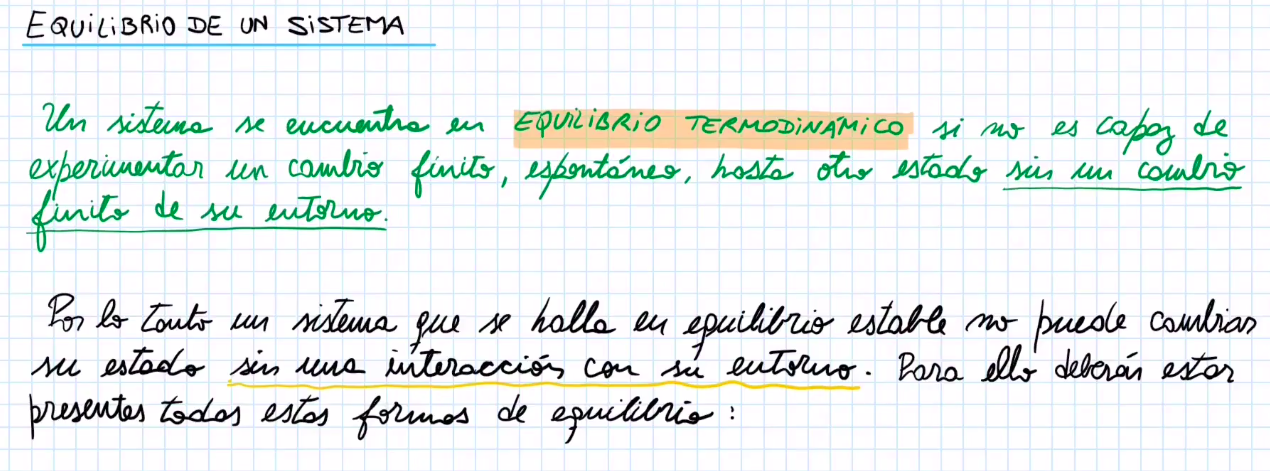 EQUILIBRIO DE UN SISTEMA
Un sistema se encuentra en EQUILIBRIO TERMODINÁMICO si no es capaz de
experimentar un cambio finito, espontáneo, hasta otro estado sin un cambio
finito de su entorno.
Por lo tanto un sistema que se halla en equilibrio estable no puede cambiar
su estado sin una interacción con su entorno. Para ello deberán estar
presentes todas estas formas de equilibrio: